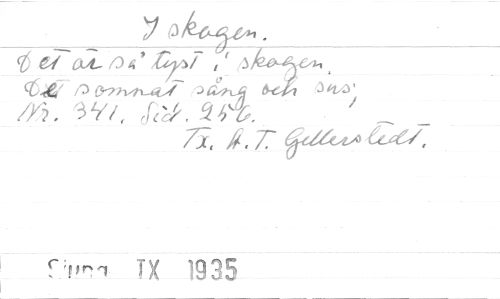 I skogen.
Det är så tyst i skogen,
Det somnat sång och sus;
Nr. 341. Sid. 256.
Tx. A.T. Gellerstedt.
Sjung TX 1935